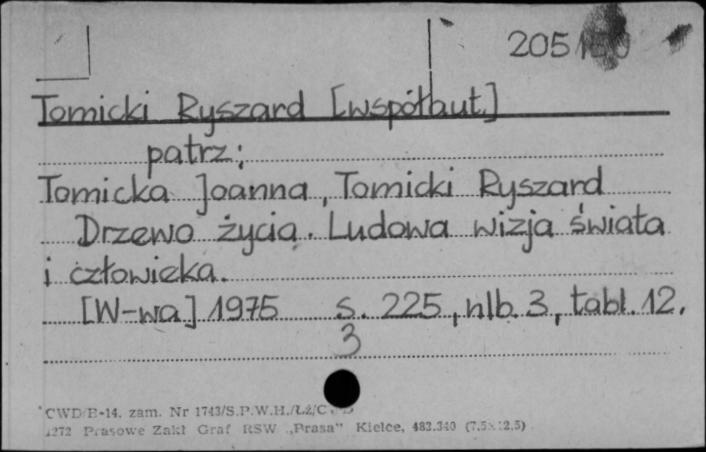 205
Tomicki Ryszard [współaut.]
patrz:
Tomicka Joanna, Tomicki Ryszard
Drzewo życia. Ludowa wizja świata
i człowieka.
[W-wa] 1975 s. 225, nlb. 3, tabl. 12.
3
CWD/B-14. zam. Nr 1743/S.P.W.H./Łż/C
Prasowe Zakł Graf RSW „Prasa" Kielce, 482.340 (7.5×12.5)